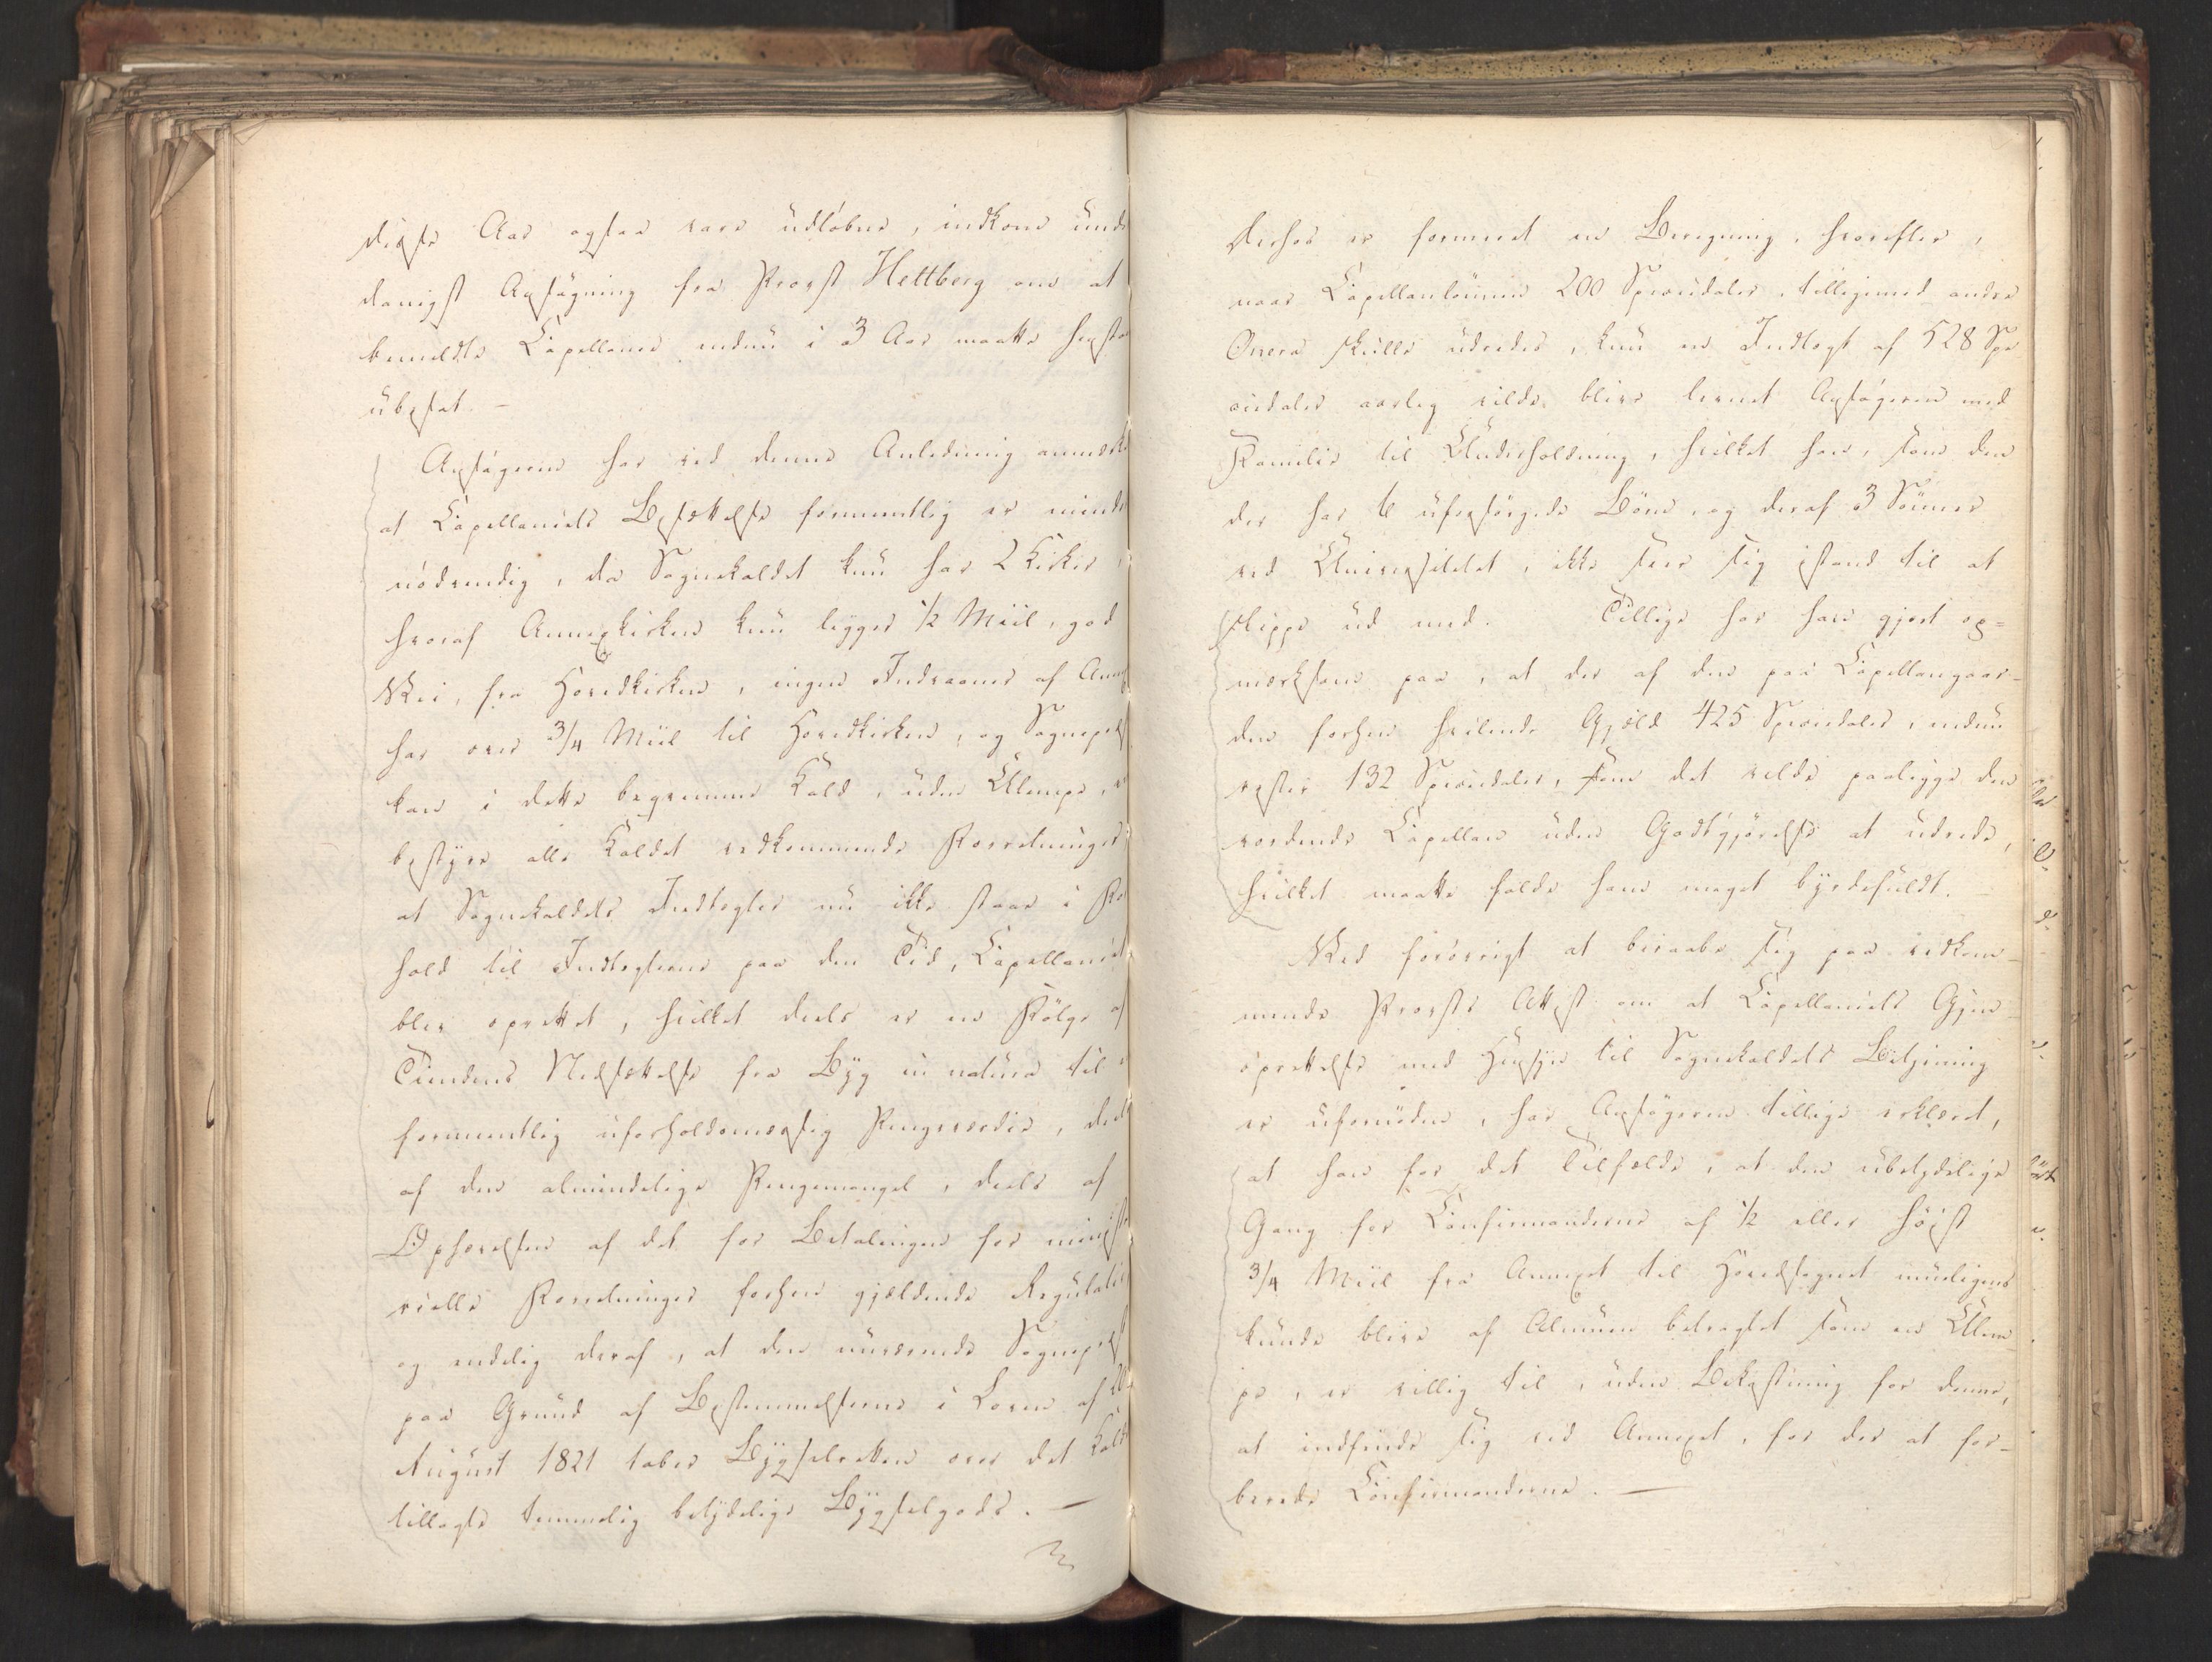 disse Aar ogsaa vare udløbne, indkom unde
danigst Ansøgning fra Provst Heltberg om at
bemeldte Capellanie endnu i 3 Aar maatte hensta
ubesat. –
Ansøgeren har ved denne Anledning anmærk
at Capellaniets Besættelse formeentlig er mindr
nødvendig, da Sognekaldet kun har 2 Kirker,
hvoraf Annexkirken kun ligger 1/2 Miil, god
Vei, fra Hovedkirken, ingen Indvaaner af Ann
har over 3/4 Miil til Hovedkirken, og Sognepræs
kan i dette beqvemme Kald, uden Ulempe,
bestyre alle Kaldet vedkommende Forretninger,
at Sognekaldets Indtægter nu ikke staar i For
hold til Indtægterne paa den Tid, Capellaniet
blev oprettet, hvilket deels er en Følge af
Tiendens Nedsættelse fra Byg in natura til
formeentlig uforholdsmæssig Pengeværdie, deels
af den almindelige Pengemangel, deels af
Ophævelsen af det for Betalingen for minist
rielle Forretninger forhen gjældende Regulativ
og endelig deraf, at den nuværende Sognepræs
paa Grund af Bestemmelserne i Loven af 20
August 1821 taber Bygselretten over det Kald
tillagte temmelig betydelige Bygselgods. –
Derhos er formeret en Beregning, hvorefter,
naar Capellanlønnen 200 Speciedaler, tilligemed andre
Onera skulle udredes, kun en Indtægt af 528 Spe
ciedaler aarlig vilde blive levnet Ansøgeren med
Familie til Underholdning, hvilket han, som den
der har 6 uforsørgede Børn, og deraf 3 Sønner
ved Universitetet, ikke seer sig istand til at
slippe ud med. Tillige har han gjort op=
mærksom paa, at der af den paa Capellangaar-
den forhen hvilende Gjæld 425 Speciedaler, endnu
rester 132 Speciedaler, som det vilde paaligge den
vordende Capellan uden Godtgjørelse at udrede,
hvilket maatte falde ham meget byrdefuldt. –
Ved forøvrigt at beraabe sig paa vedkom-
mende Provsts Attest om at Capellaniets Gjen-
oprettelse med Hensyn til Sognekaldets Betjening
er ufornøden, har Ansøgeren tillige erklæret,
at han for det Tilfælde, at den ubetydelige
Gang for Confirmanderne af 1/2 eller høist
3/4 Miil fra Annexet til Hovedsognet muligens
kunde blive af Almuen betragtet som en Ulem-
pe, er villig til, uden Bekostning for denne,
at indfinde sig ved Annexet, for der at for-
berede Confirmanderne. –